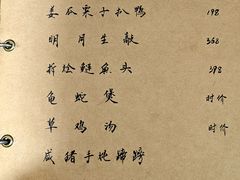 姜瓜栗子扒鸭 198
明月生敲 368
拆烩鲢鱼头 398
龟蛇煲 时价
草鸡汤 时价
咸猪手炖蹄膀